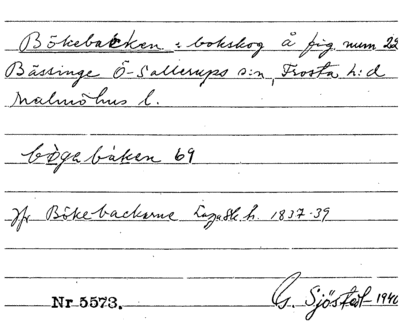 Bökebacken : bokskog å fig num 22
Bässinge Ö-Sallerups s:n, Frosta h:d
Malmöhus l.
bögabaken 69
Jfr Bökebackarne Laga sk. h. 1837-39
Nr 5573. G. Sjöstedt 1946